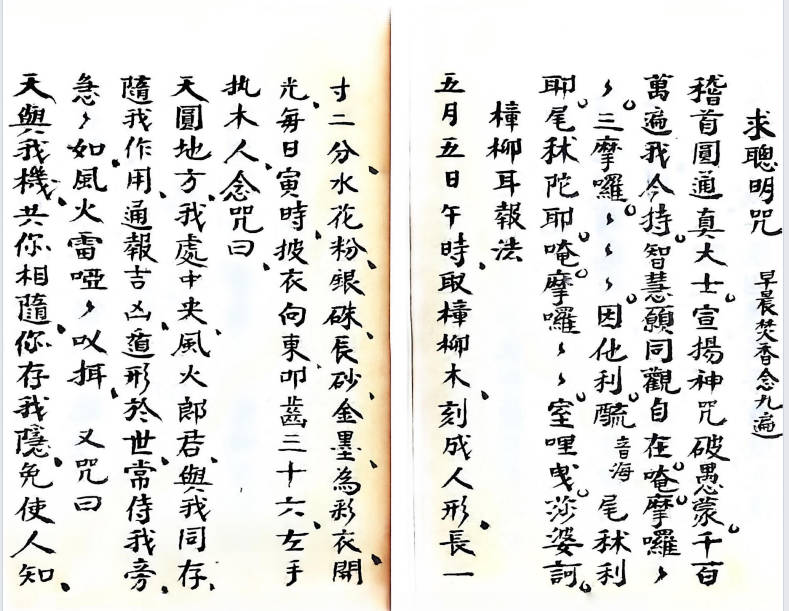 求聰明咒 早晨焚香念九遍
稽首圓通真大士。宣揚神咒破愚蒙。千百
萬遍我今持。智慧願同觀自在。唵摩囉。々
々。三摩囉。々々々。因他利醯音海尾秫利
耶。尾秫陀耶。唵摩囉。々々。室哩曳。莎婆訶。
樟柳耳報法
五月五日午時、取樟柳木、刻成人形、長一
寸二分、水花粉、銀硃、長砂、金墨為彩衣、開
光、每日寅時、披衣向東、叩齒三十六、左手
执木人、念咒曰、
天圓地方、我處中央、風火郎君、與我同存、
隨我作用、通報吉凶、遁形於世、常侍我旁、
急々如風火雷啞々㕥揖、 又咒曰
天與我機、共你相隨、你存我隱、免使人知、